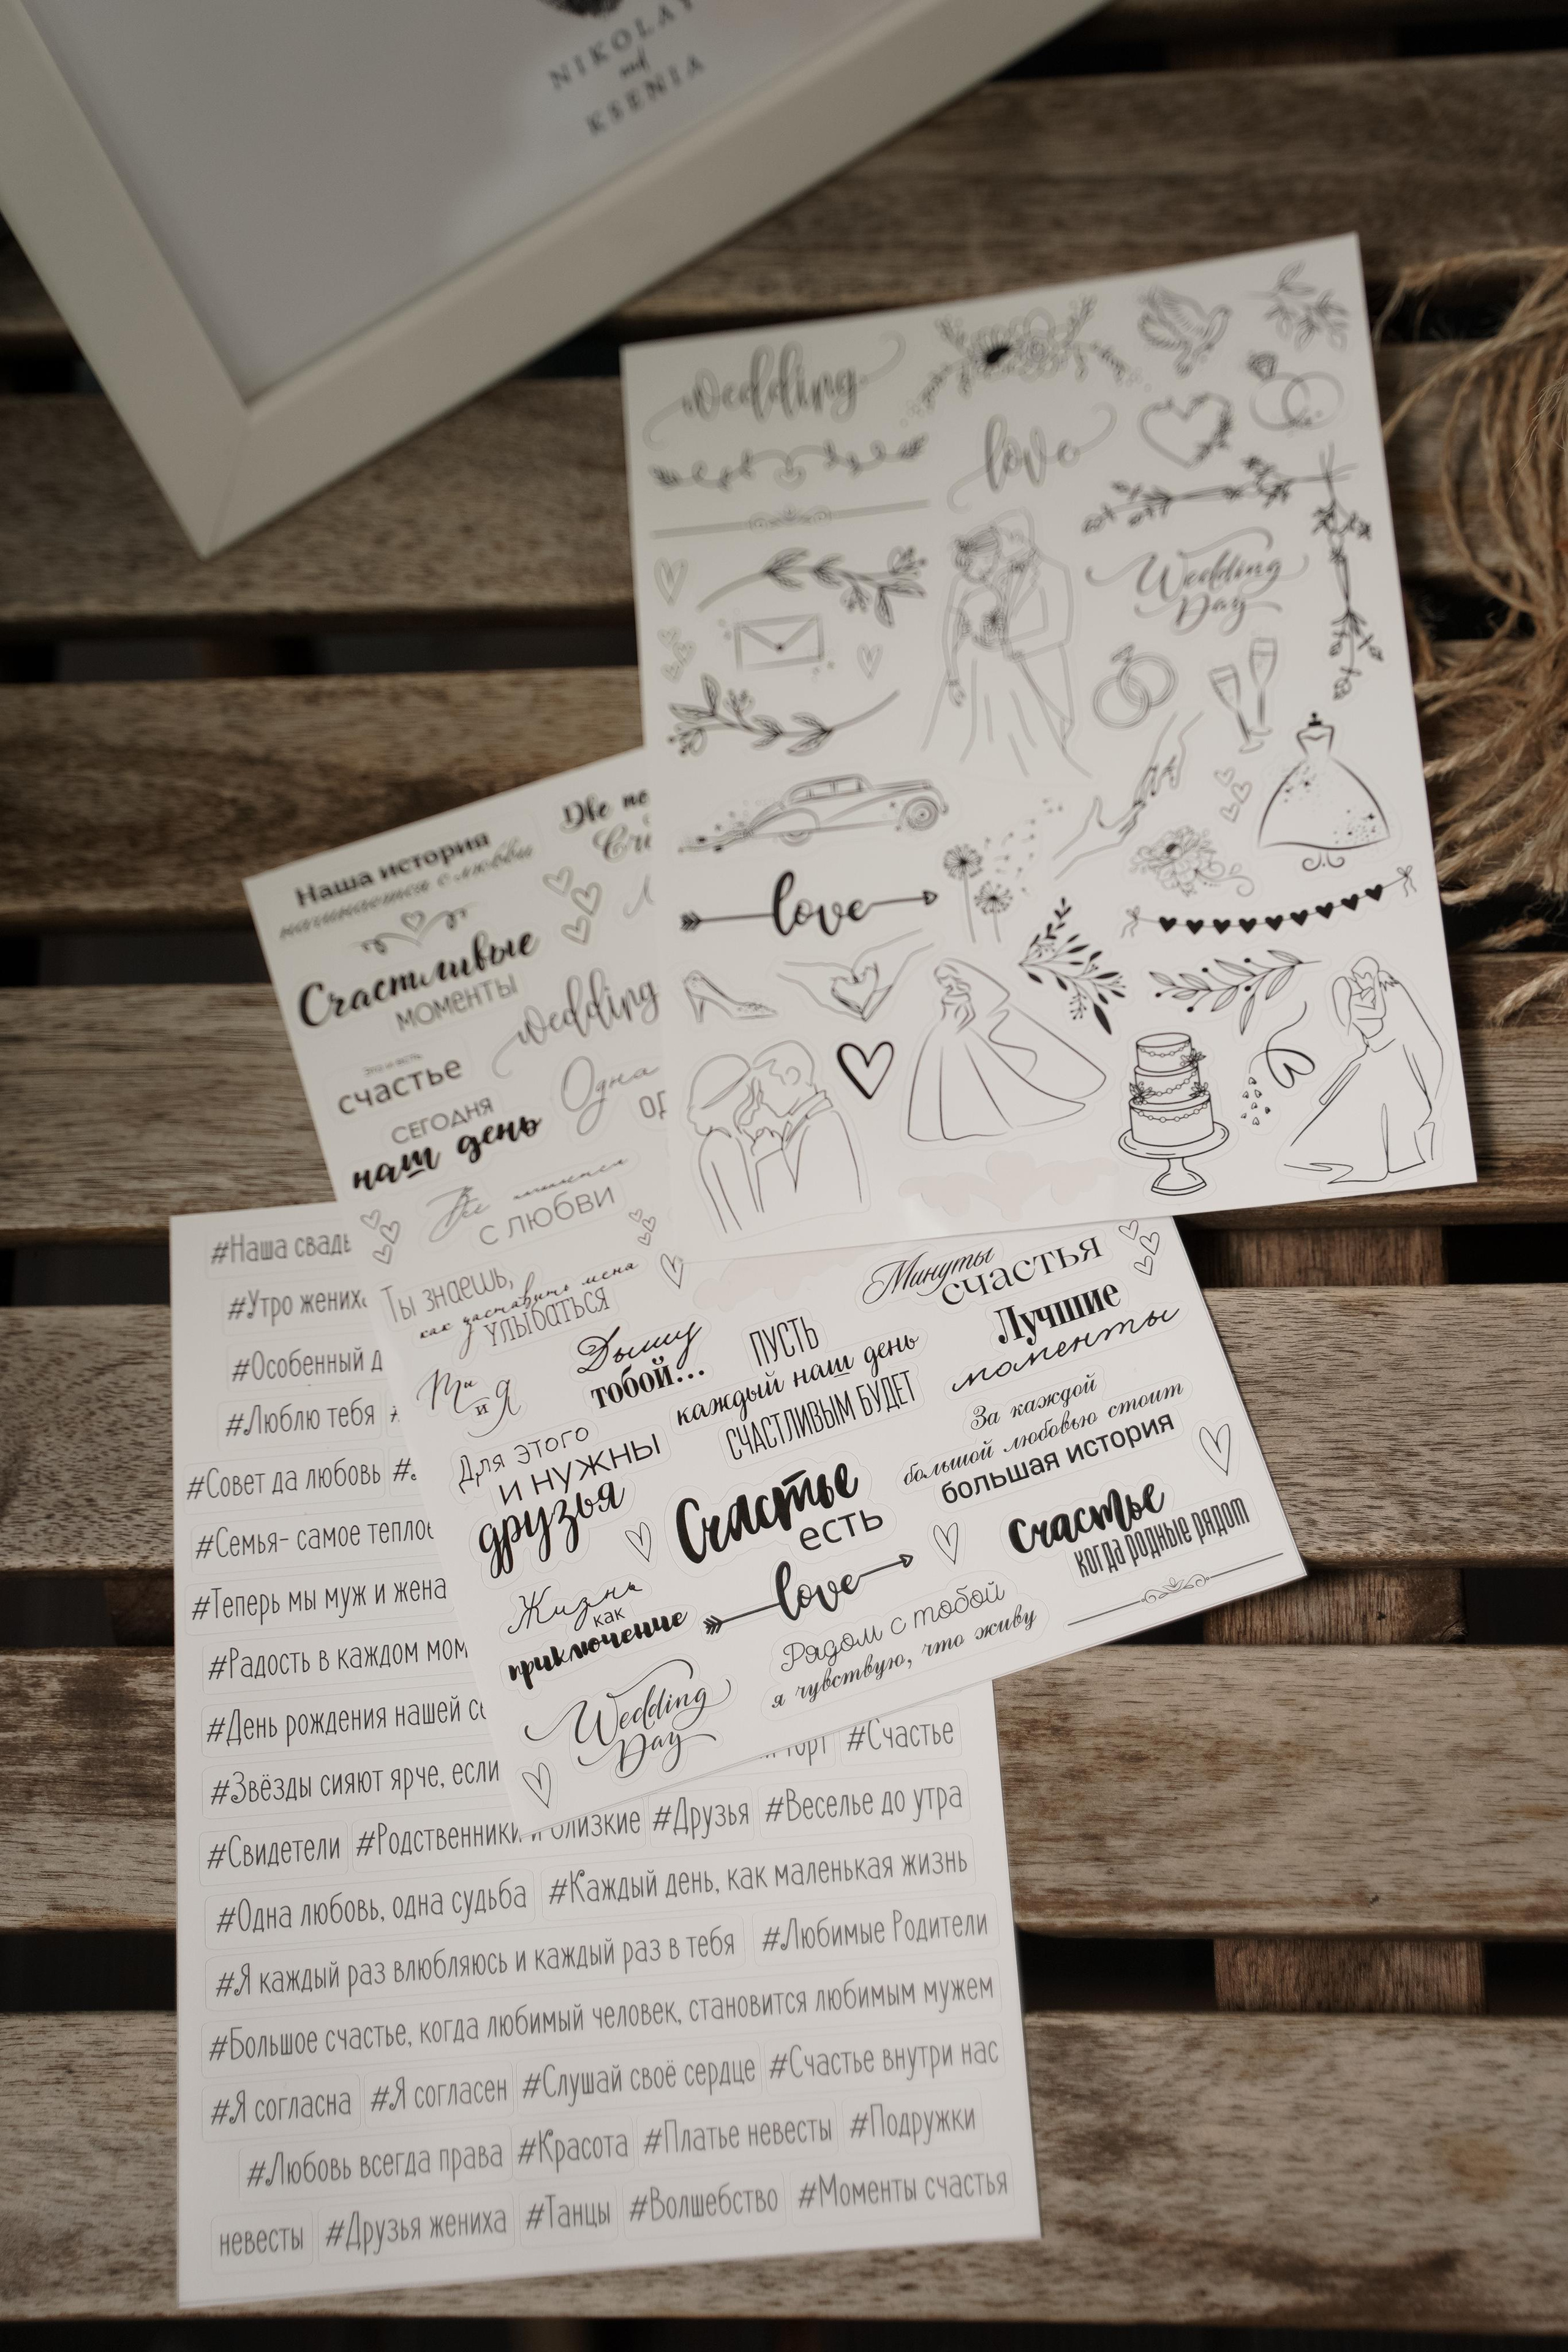 NIKOLAY
and
KSENIA
wedding
love
Wedding
Day
love
Наша история
начинается с любви
Счастливые
моменты
wedding
это и есть
счастье
Одна
СЕГОДНЯ
наш день
Все
с любви
Ты знаешь,
как заставить меня
улыбаться
Минуты
счастья
Дышу
тобой...
Ты
и Я
ПУСТЬ
каждый наш день
СЧАСТЛИВЫМ БУДЕТ
Лучшие
моменты
Для этого
и нужны
друзья
За каждой
большой любовью стоит
большая история
Счастье
есть
Счастье
когда родные рядом
Жизнь
как
приключение
love
Рядом с тобой
я чувствую, что живу
Wedding
Day
#Наша
#Утро
#Особенный
#Люблю тебя
#Совет да любовь
#Семья- самое
#Теперь мы муж и жена
#Радость в каждом
#День рождения нашей
#Звёзды сияют ярче, если
#Счастье
#Свидетели #Родственники и близкие #Друзья #Веселье до утра
#Одна любовь, одна судьба #Каждый день, как маленькая жизнь
#Я каждый раз влюбляюсь и каждый раз в тебя #Любимые Родители
#Большое счастье, когда любимый человек, становится любимым мужем
#Я согласна #Я согласен #Слушай своё сердце #Счастье внутри нас
#Любовь всегда права #Красота #Платье невесты #Подружки
невесты #Друзья жениха #Танцы #Волшебство #Моменты счастья